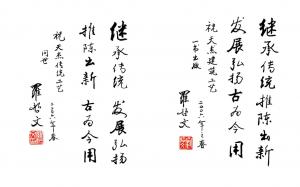 继承传统 发展弘扬
推陈出新 古为今用
祝天杰传统工艺
问世
二〇〇六年春
罗哲文
继承传统推陈出新
发展弘扬古为今用
祝天杰建筑工艺
一书出版
二〇〇六年之春
罗哲文